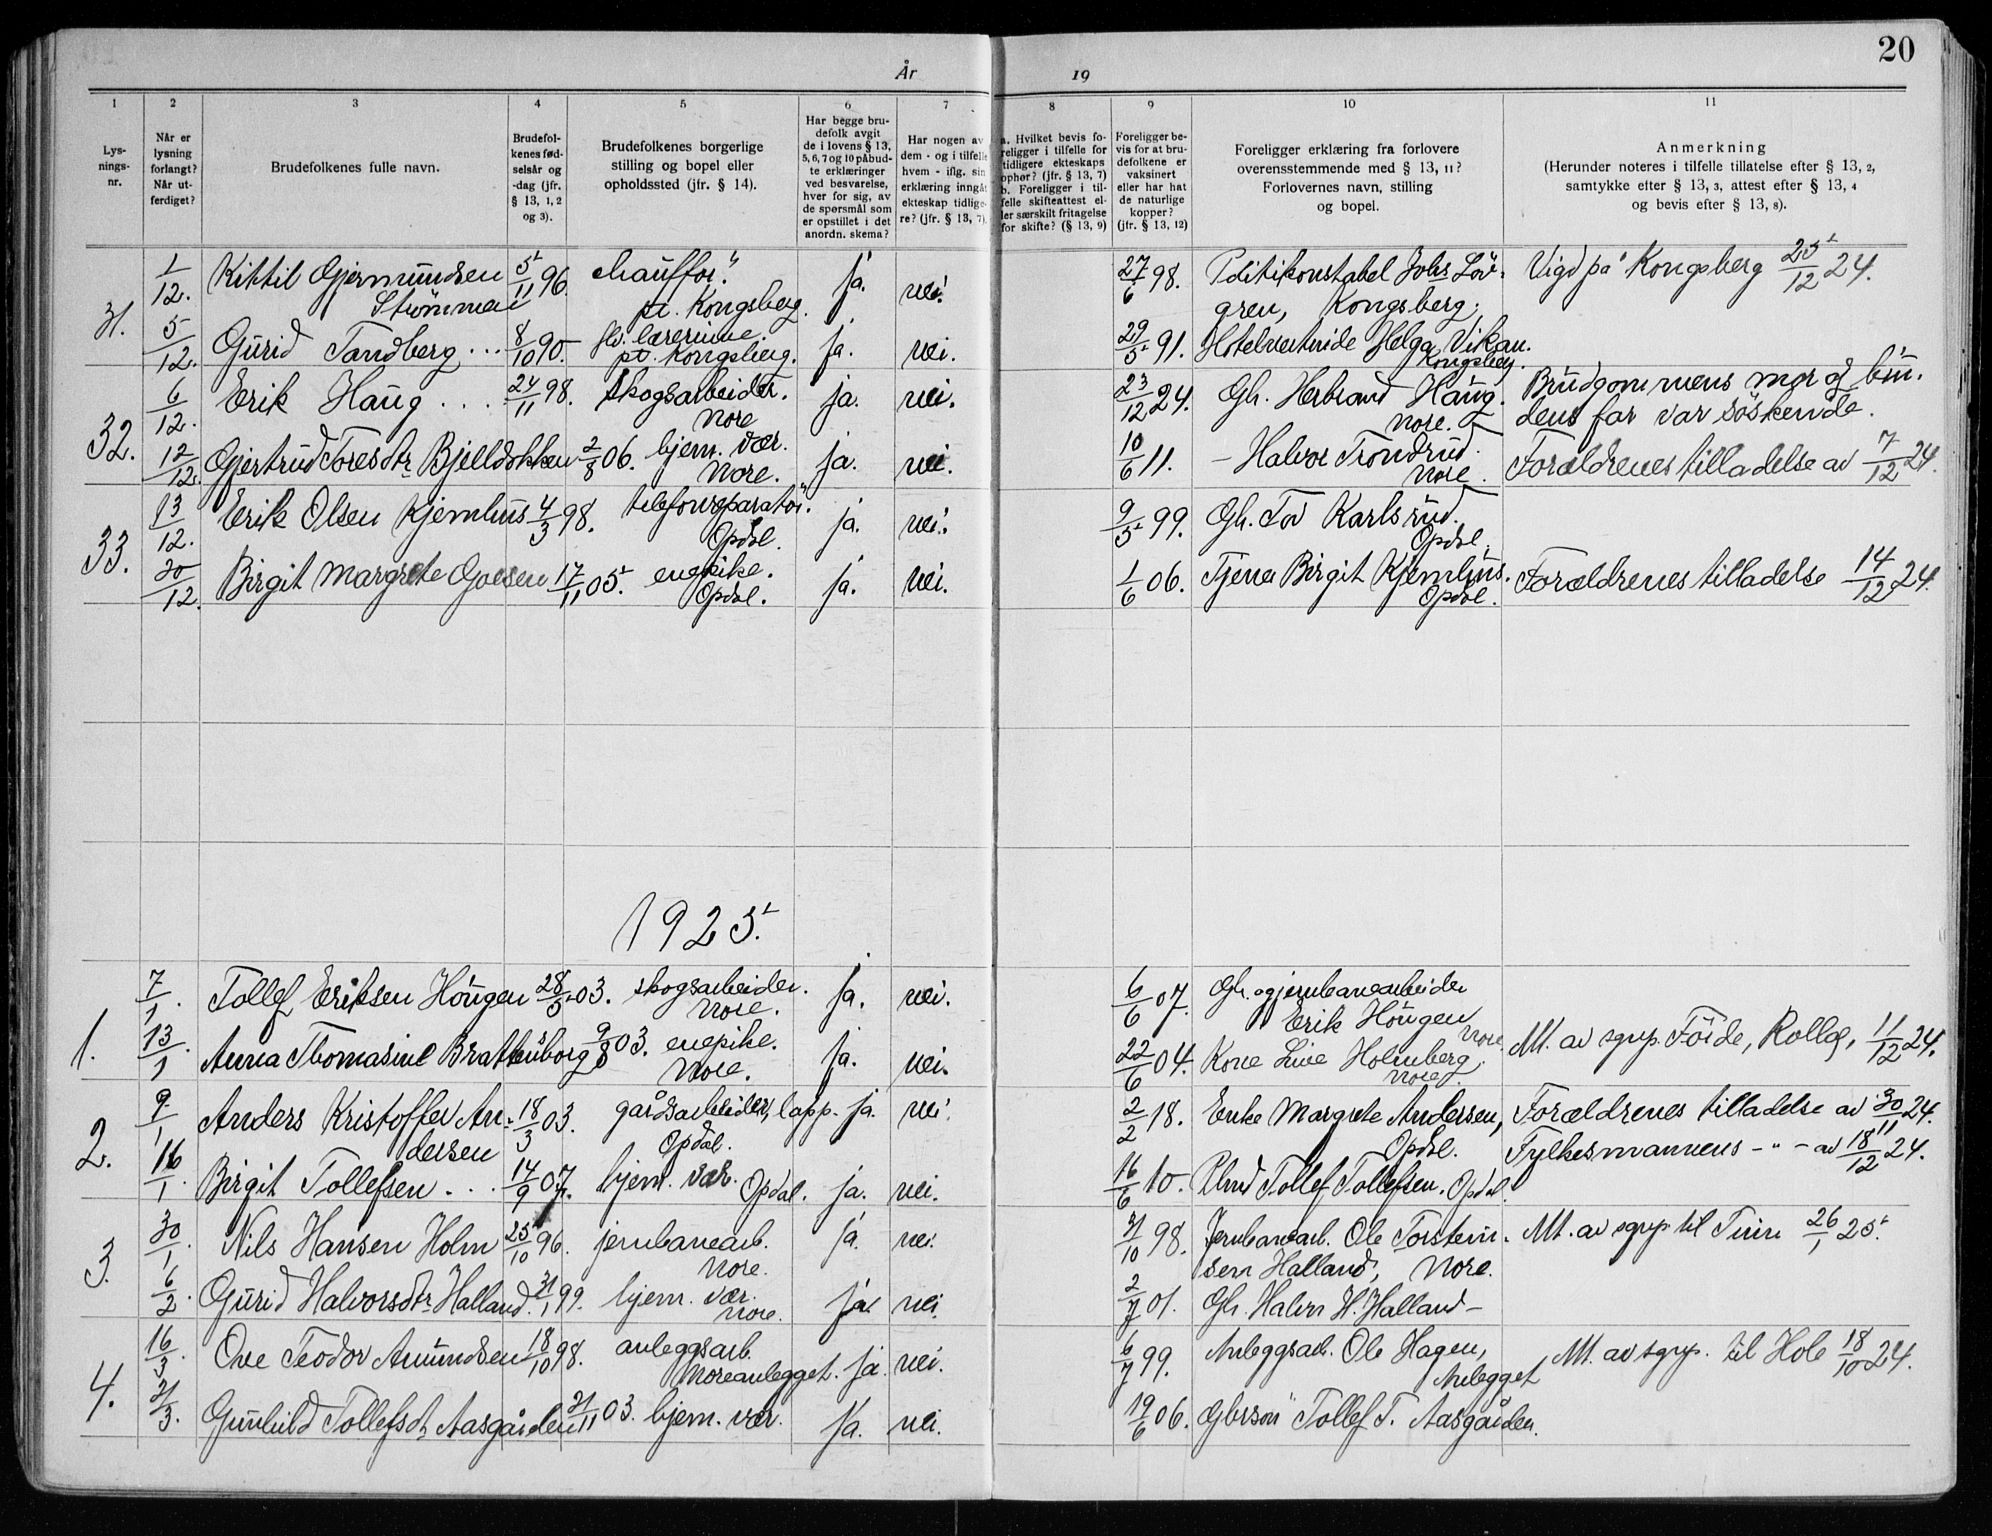 20
År
19
1
2
3
4
5
6
7
8
9
10
11
Lys-
nings-
nr.
Når er
lysning
forlangt?
Når ut-
ferdiget?
Brudefolkenes fulle navn.
Brudefol-
kenes fød-
selsår og
-dag (jfr.
§ 13, 1, 2
og 3).
Brudefolkenes borgerlige
stilling og bopel eller
opholdssted (jfr. § 14).
Har begge bru-
defolk avgit
de i lovens § 13,
5, 6, 7 og 10 påbud-
te erklæringer
ved besvarelse,
hver for sig, av
de spørsmål som
er opstillet i det
anordn. skema?
Har nogen av
dem - og i tilfelle
hvem - iflg. sin
erklæring inngåt
ekteskap tidlige-
re? (jfr. § 13, 7).
a. Hvilket bevis fo-
religger i tilfelle for
tidligere ekteskaps
ophør? (jfr. § 13, 7)
b. Foreligger i til-
felle skifteattest el-
ler særskilt fritagelse
for skifte? (§ 13, 9)
Foreligger be-
vis for at bru-
defolkene er
vaksinert
eller har hat
de naturlige
kopper?
(jfr. § 13, 12)
Foreligger erklæring fra forlovere
overensstemmende med § 13, 11?
Forlovernes navn, stilling
og bopel.
Anmerkning
(Herunder noteres i tilfelle tillatelse efter § 13, 2,
samtykke efter § 13, 3, attest efter § 13, 4
og bevis efter § 13, 8).
31. 1/12. Kittil Gjermundsen 5/11 96. chauffør. ja. nei. 27/6 98. Politikonstabel Johs Löv- Vigd på Kongsberg 25/12 24.
Strømmen pt. Kongsberg. gren, Kongsberg.
5/12. Gurid Tandberg ... 8/10 90. hj. lærerinne. ja. nei. 29/5 91. Hotelvertinde Helga Vikan.
pt. Kongsberg. Kongsberg.
32. 6/12. Erik Haug ... 24/11 98. skogsarbeider. ja. nei. 23/12 24. Gh. Herbrand Haug. Brudgommens mor og bru-
Nore Nore. dens far var söskende.
12/12. Gjertrud Toresdtr Bjelldokken 2/8 06. hjem. vær. ja. nei. 10/6 11. - Halvor Trondrud. Forældrenes tilladelse av 7/12 24.
Nore. Nore.
33. 13/12. Erik Olsen Kjemhus 4/3 98. telefonreparatör. ja. nei. 9/5 99. Gh. Tov Karlsrud.
Opdal. Opdal.
20/12. Birgit Margrete Goesen 17/11 05. enepike. ja. nei. 1/6 06. Tjener Birgit Kjemhus. Forældrenes tilladelse 14/12 24.
Opdal. Opdal.
1925.
1. 7/1. Tollef Eriksen Höugen 28/5 03. skogsarbeider. ja. nei. 6/6 07. Gh. og jernbanearbeider
Nore. Erik Höugen
Nore.
13/1 Anna Thomasine Brattensborg 9/8 03. enepike. ja. nei. 22/6 04. Kone Line Holmberg. Mt. av sgnp. Förde, Rollag, 11/12 24.
Nore. Nore.
2. 9/1 Anders Kristoffer An- 18/3 03. gårdsarbeider, lapp. ja. nei. 2/2 18. Enke Margrete Andersen, Forældrenes tilladelse av 30/11 24.
dersen Opdal. Opdal. Fylkesmannens - " - av 18/12 24.
16/1 Birgit Tollefsen ... 14/9 07. hjem. vær. Opdal. ja. nei. 16/6 10. Tollef Tollefsen. Opdal.
3. 30/1. Nils Hansen Holm 25/10 96. jernbanearb. ja. nei. 3/10 98. Jernbanearb. Ole Torstein- Mt. av sgnp. til Tinn 26/1 25.
Nore. sen Halland, Nore.
6/2. Gurid Halvorsdtr Halland. 31/1 99. hjem. vær. ja. nei. 2/7 01. Gh. Halvor H. Halland -
Nore.
4. 16/3. Ove Teodor Amundsen 18/10 98. anleggsarb. ja. nei. 6/7 99. Anleggsarb. Ole Hagen, Mt. av sgnp. til Hole 18/10 24.
Noreanlegget. Anlegget
21/3. Gunhild Tollefsdtr Aasgården 21/11 03. hjem. vær. ja. nei. 19/6 06. Gbrsön Tollef T. Aasgården.